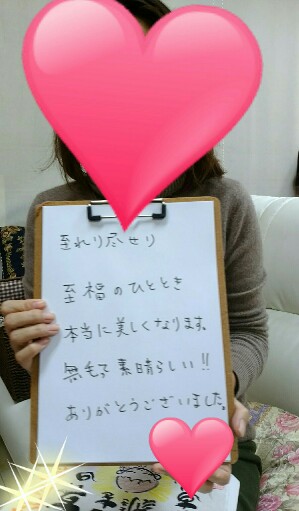 至れり尽せり
至福のひととき
本当に美しくなります。
無毛で素晴らしい!!
ありがとうございました。